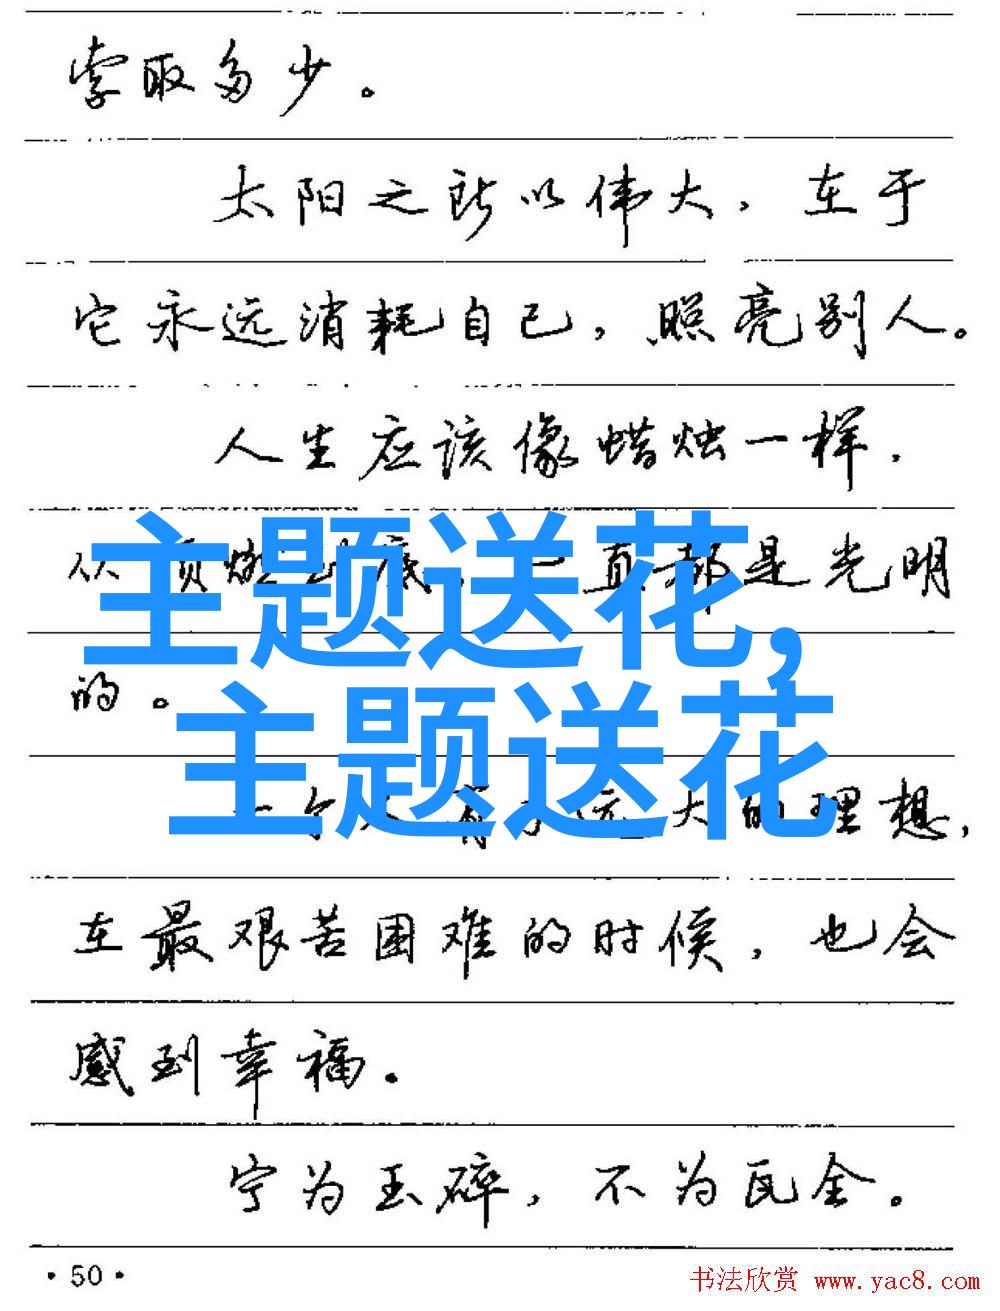 索取多少。
太阳之所以伟大，在于
它永远消耗自己，照亮别人。
人生应该像蜡烛一样，
从顶燃到底，一直都是光明
的。
主题送花，
主题送花
一个人有了远大的理想，
在最艰苦困难的时候，也会
感到幸福。
宁为玉碎，不为瓦全。
·50·
书法欣赏 www.yac8.com